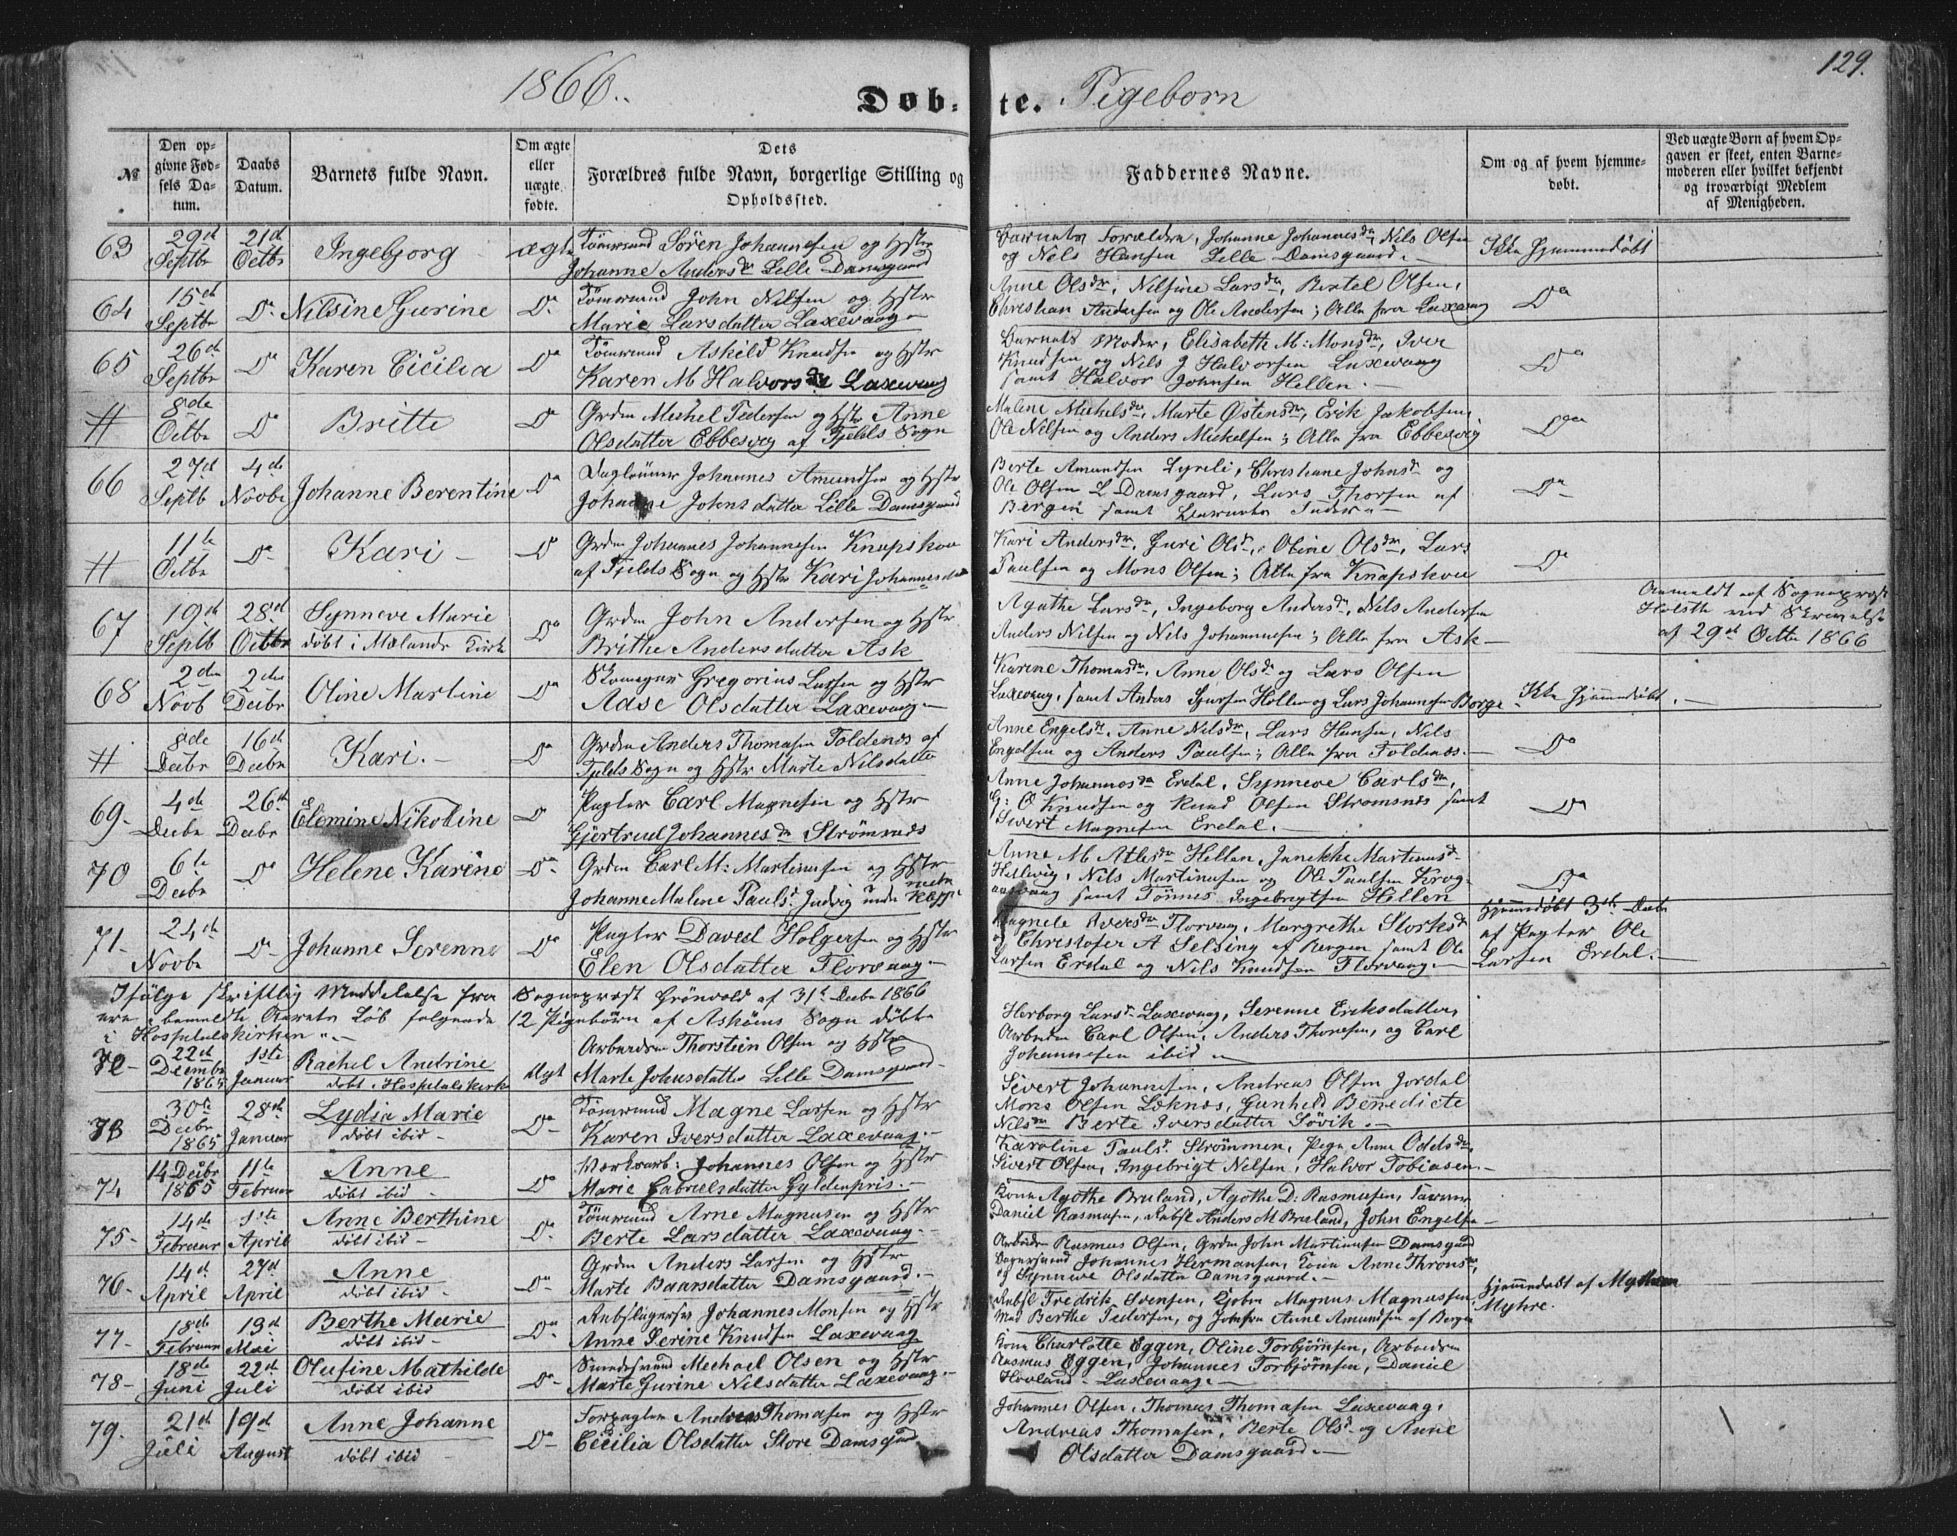 129.
1866.
Døb-te. Pigeborn
№
Den opgivne Fødsels Datum.
Daabs Datum.
Barnets fulde Navn.
Om ægte eller uægte fødte.
Dets Forældres fulde Navn, borgerlige Stilling og Opholdssted.
Faddernes Navne.
Om og af hvem hjemmedøbt.
Ved uægte Børn af hvem Opgaven er skeet, enten Barnemoderen eller hvilket bekjendt og troværdigt Medlem af Menigheden.
63 29de Septbr 21de Octbr Ingebjorg ægte Tömrmand Sören Johannesen og Hstr
Johanne Andersdr Lille Damsgaard
Barnets Forældre, Johanne Johannesdr, Nils Olsen
og Nils Hansen Lille Damsgaard. Ikke hjemmedöbt
64 15de Septbr Do Nilsine Gurine Do Tömrmand John Nilsen og Hstr
Marie Larsdatter Laxevaag
Anne Olsdr, Nilsine Larsdr, Bertel Olsen,
Christian Andersen og Ole Andersen; Alle fra Laxevaag Do
65 26de Septbr Do Karen Cicilia Do Tömrmand Askild Knudsen og Hstr
Karen M Halvorsdr Laxevaag
Barnets Moder, Elisabeth M: Monsdr, Iver
Knudsen og Nils J Halvorsen Laxevaag
samt Halvor Johnsen Hellen. Do
# 8de Octbr Do Britte Do Grdm Mechel Pedersen og Hstr Anne
Olsdatter Ebbesvig af Fjelds Sogn
Malene Michelsdr, Marte Østensdr, Erik Jakobsen,
Ole Nilsen og Anders Mickelsen; Alle fra Ebbesvig Do
66 27de Septb 4de Novbr Johanne Berentine Do Daglönner Johannes Amundsen og Hstr
Johanne Johnsdatter Lille Damsgaard
Berte Amundsen Lyreli, Christiane Johnsdr og
Ole Olsen L Damsgaard, Lars Thorsen af
Bergen samt Barnets Fader. Do
# 11te Octbr Do Kari Do Grdm Johannes Johannesen Knapskou
af Fjelds Sogn og Hstr Kari Johannesdr
Kari Andersdr, Guri Olsdr, Oline Olsdr, Lars
Paulsen og Mons Olsen; Alle fra Knapskou Do
67 19de Septb 28de Octbr Synneve Marie
döbt i Mælands Kirke Do Grdm John Andersen og Hstr
Brithe Andersdatter Ask
Agathe Larsdr, Ingeborg Andersdr, Nils Andersen
Anders Nilsen og Nils Johannesen; Alle fra Ask
Anmeldt af Sogneprest
Holsth ved Skrivelse
af 29de Octbr 1866
68 2den Novb 2den Decbr Oline Martine Do Skomager Gregorius Larsen og Hstr
Adse Olsdatter Laxevaag
Karine Thomasdr, Anne Olsdr og Lars Olsen
Laxevaag, samt Anders Larsen Hellen og Lars Johannesen Borge Ikke hjemmedöbt.
# 8de Decbr 16de Decbr Kari. Do Grdm Anders Thomasen Foldenæs af
Fjelds Sogn og Hstr Marte Nilsdatter
Anne Engelsdr, Anne Nilsdr, Lars Hansen, Nils
Engelsen og Anders Paulsen; Alle fra Foldnæs. Do
69- 4de Decbr 26de Decbr Elemine Nikoline Do Pagter Carl Magnesen og Hstr
Gjertrud Johannesdr Strömsnæs
Anne Johannesdr Erdal, Synneve Carlsdr,
G: O Knudsen og Knud Olsen Strömsnæs samt
Sivert Magnesen Erdal. Do
70 6te Decbr Do Helene Karine Do Grdm Carl M: Martinusen og Hstr
Johanne Malene Paulsdr
Anne M Atlesdr Hellen, Janikke Martinusdr
Hellevig, Nils Martinusen og Ole Paulsen
samt Tönnes Ingebrigtsen Hellen Do
71- 24de Novbr Do Johanne Serenne Do Pagter David Holgersen og Hstr
Elen Olsdatter Florvaag
Magnele Iversdr Florvaag, Margrethe Storksdr
og Christofer A Selsing af Bergen samt Ole
Larsen Erdal og Nils Knudsen Florvaag.
Hjemmedöbt 3de Decbr
af Pagter Ole
Larsen Erdal.
Ifölge skriftlig Meddelelse fra Sogneprest Grönvold af 31te Decbr 1866
ere i bemeldte Aarets Löb folgende 12 Pigebörn af Asköens Sogn döbte
i Hospitalskirken
72- 22de Decembr 1865 1ste Januar Rachel Andrine
döbt i Hospitalskirk Ægt Arbeidsm Thorstein Olsen og Hstr
Marte Johnsdatter Lille Damsgaard
Herborg Larsdr Laxevaag, Serenne Eriksdatter,
Arbeidsm Carl Olsen, Anders Thoresen, og Carl
Johannesen ibid
73 30te Decbr 1865 28de Januar Lydia Marie
döbt ibid Do Tömrmand Magne Larsen og Hstr
Karen Iversdatter Laxevaag.
Sivert Johannesen, Andreas Olsen Jordal
Mons Olsen Leknæs, Gunhild Benedicte
Nilsdr Berte Iversdatter Sövik.
74 14 Decbr 1865 11te Februar Anne
döbt ibid Do Værkarb: Johannes Olsen og Hstr
Marie Gabrielsdatter Gyldenpris.
Karoline Paulsdr Strömmen, Pige Anne Oddsdr
Sivert Olsen, Ingebrigt Nilsen, Halvor Tobiasen.
75- 14de Februar 1ste April Anne Berthine
döbt ibid Do Tömrmand Arne Magnusen og Hstr
Berte Larsdatter Laxevaag
Kone Agothe Bruland, Agothe D: Rasmusen,
Daniel Rasmusen, Rebsl Anders M Bruland, John Engelsen
76- 14de April 27de April Anne
döbt ibid Do Grdm Anders Larsen og Hstr
Marte Baarsdatter Damsgaard.
Arbeidsm Rasmus Olsen, Grdm John Martinusen Damsgaard
Johannes Hermansen, Kone Anne Thronsdr,
og Synneve Olsdatter Damsgaard. Hjemmedöbt af
Myhre.
77- 18de Februar 13de Mai Berthe Marie
döbt ibid Do Rebslagersv Johannes Monsen og Hstr
Anne Serine Knudsen Laxevaag
Rebsl Fredrik Svensen, Magnus Magnusen,
Mad Berthe Pedersen, og Jomfru Anne Amundsen af Bergen
78- 18de Juni 22de Juli Olufine Mathilde
döbt ibid Do Sundsmand Mechael Olsen og Hstr
Marte Gurine Nilsdatter Laxevaag.
Kone Charlotte Eggen, Oline Torbjörnsen, Arbeidsm
Rasmus Eggen, Johannes Torbjörnsen, Daniel
Hovland Laxevaag
79. 21de Juli 19de August Anne Johanne
döbt ibid Do Forpagter Andreas Thomasen og Hstr
Cicilia Olsdatter Store Damsgrd
Johannes Olsen, Thomas Thomasen Laxevaag,
Andreas Thomasen, Berte Olsdr og Anne
Olsdatter Damsgaard.